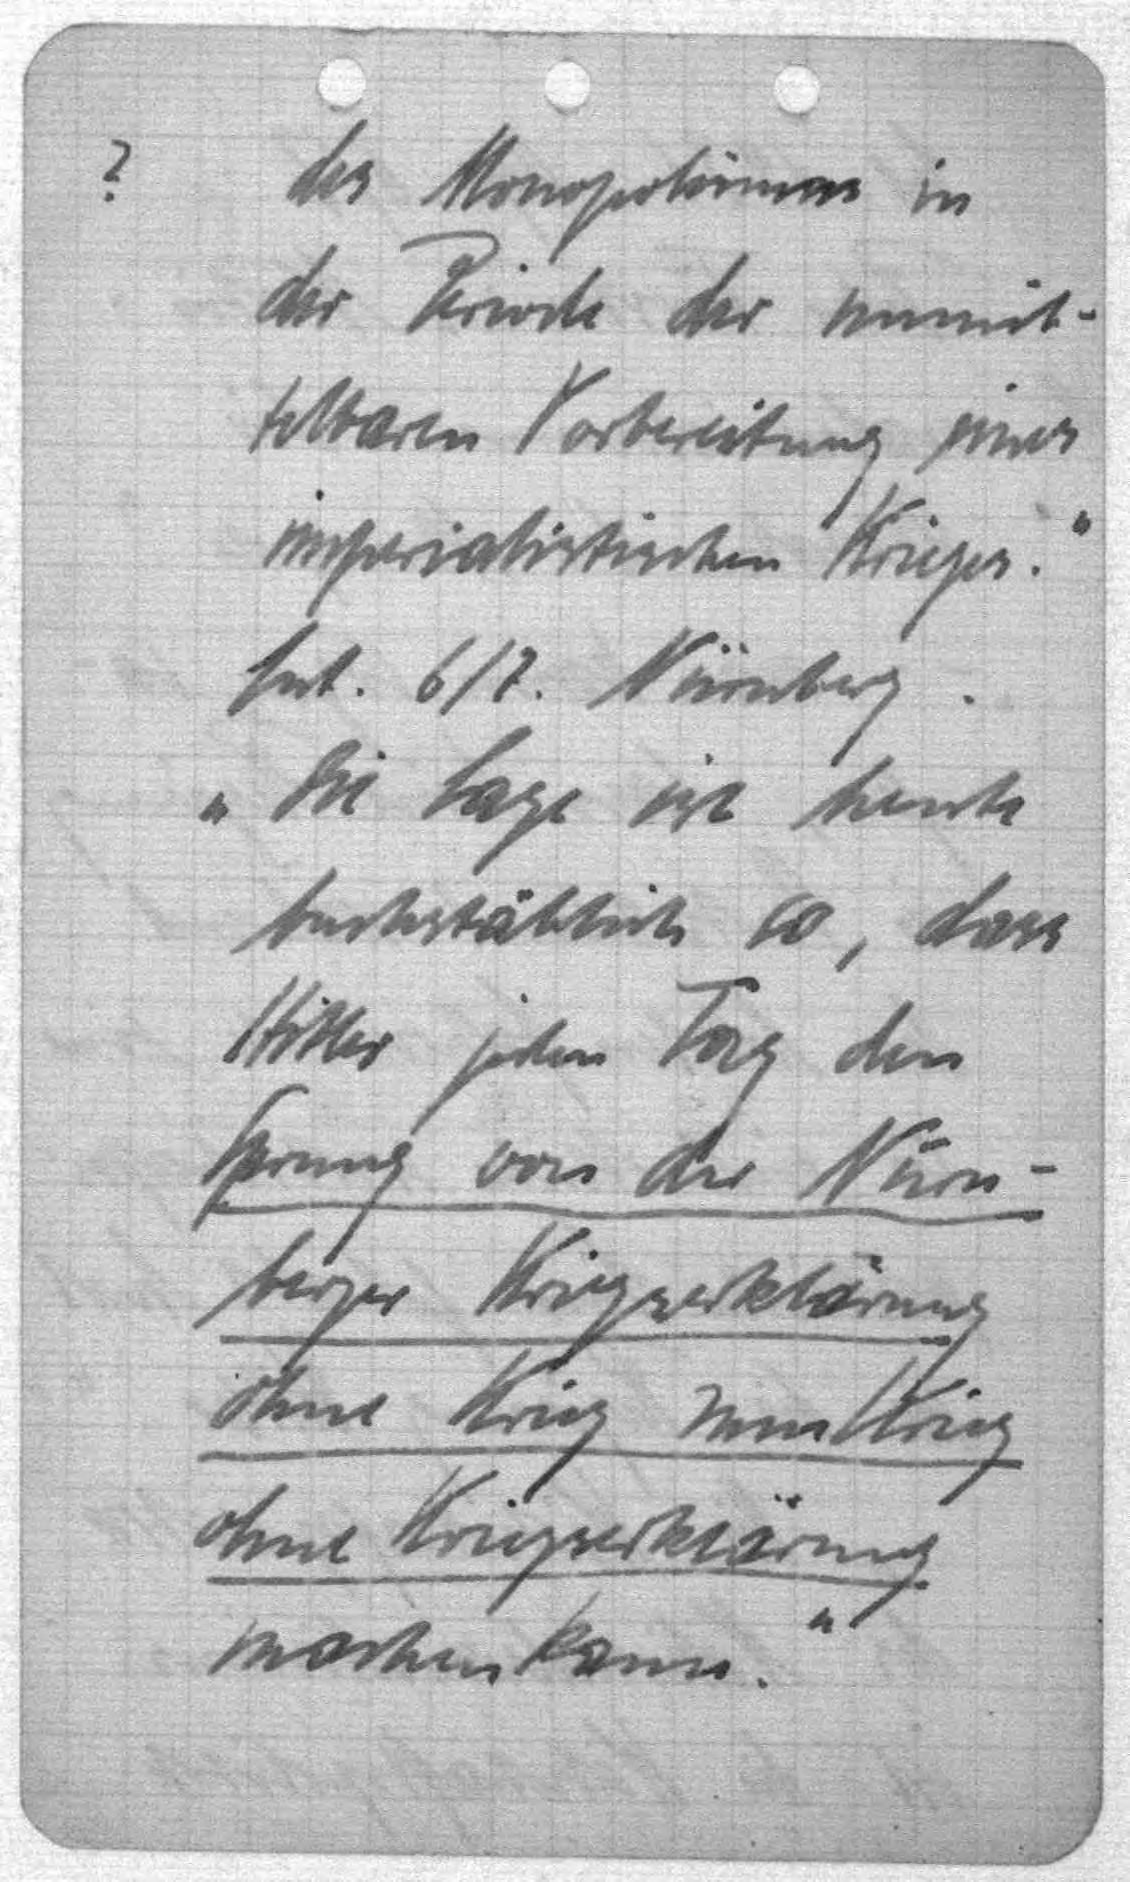 ? des Monopolismus in
der Periode der unmit-
telbaren Vorbereitung eines
imperialistischen Krieges."
Int. 6/7. Nürnberg.
"Die Lage ist heute
buchstäblich so, dass
Hitler jeden Tag den
Sprung von der Nürn-
berger Kriegserklärung
ohne Krieg zum Krieg
ohne Kriegserklärung
machen kann."